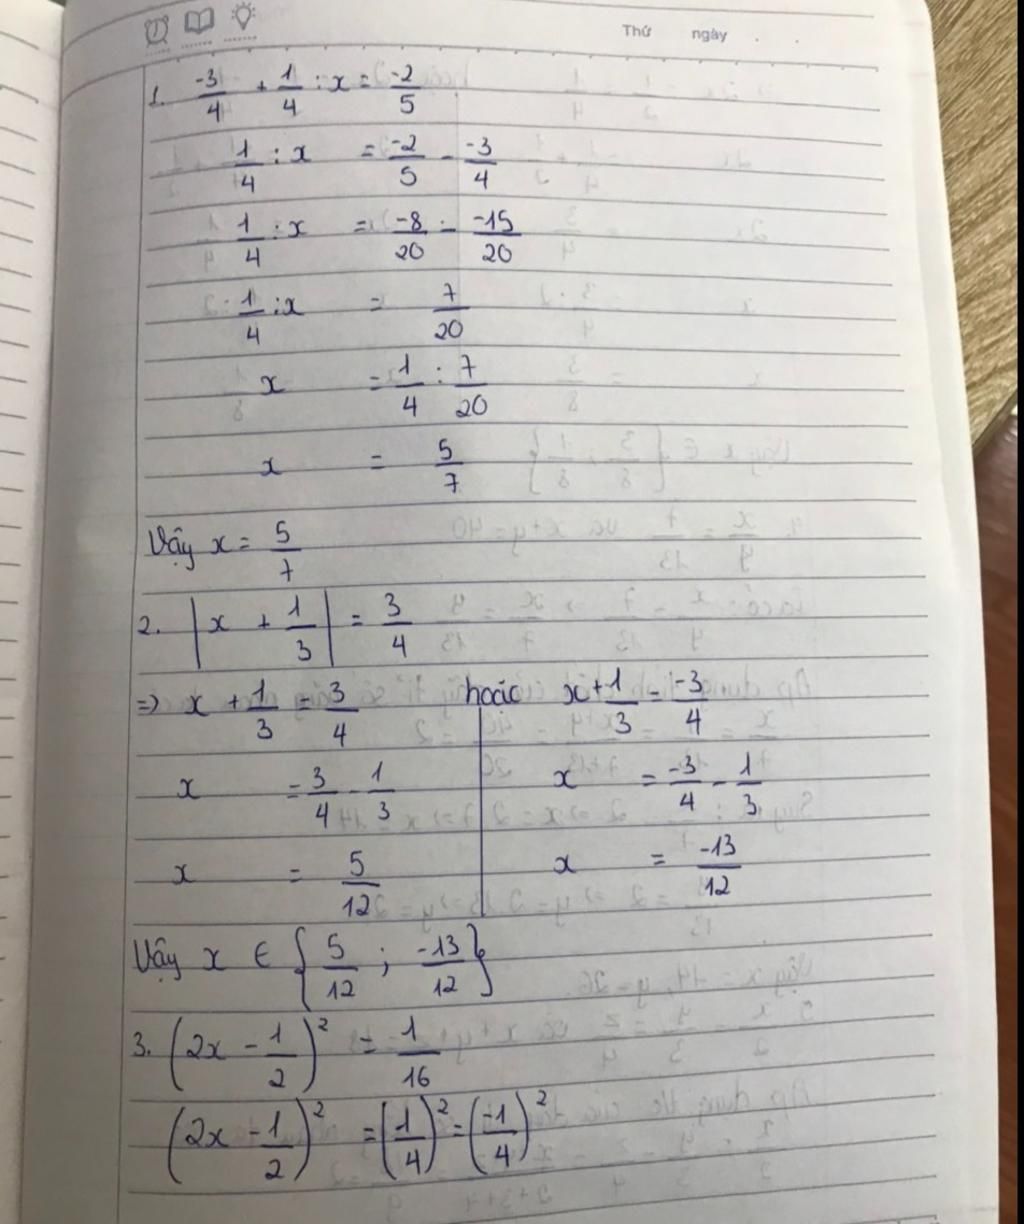 Thứ ngày . .
1. -3/4 + 1/4 : x = -2/5
1/4 : x = -2/5 - -3/4
1/4 : x = -8/20 - -15/20
1/4 : x = 7/20
x = 1/4 : 7/20
x = 5/7
Vậy x = 5/7
2. |x + 1/3| = 3/4
=> x + 1/3 = 3/4 hoặc x + 1/3 = -3/4
x = 3/4 - 1/3 x = -3/4 - 1/3
x = 5/12 x = -13/12
Vậy x ∈ {5/12 ; -13/12}
3. (2x - 1/2)² = 1/16
(2x - 1/2)² = (1/4)² = (-1/4)²